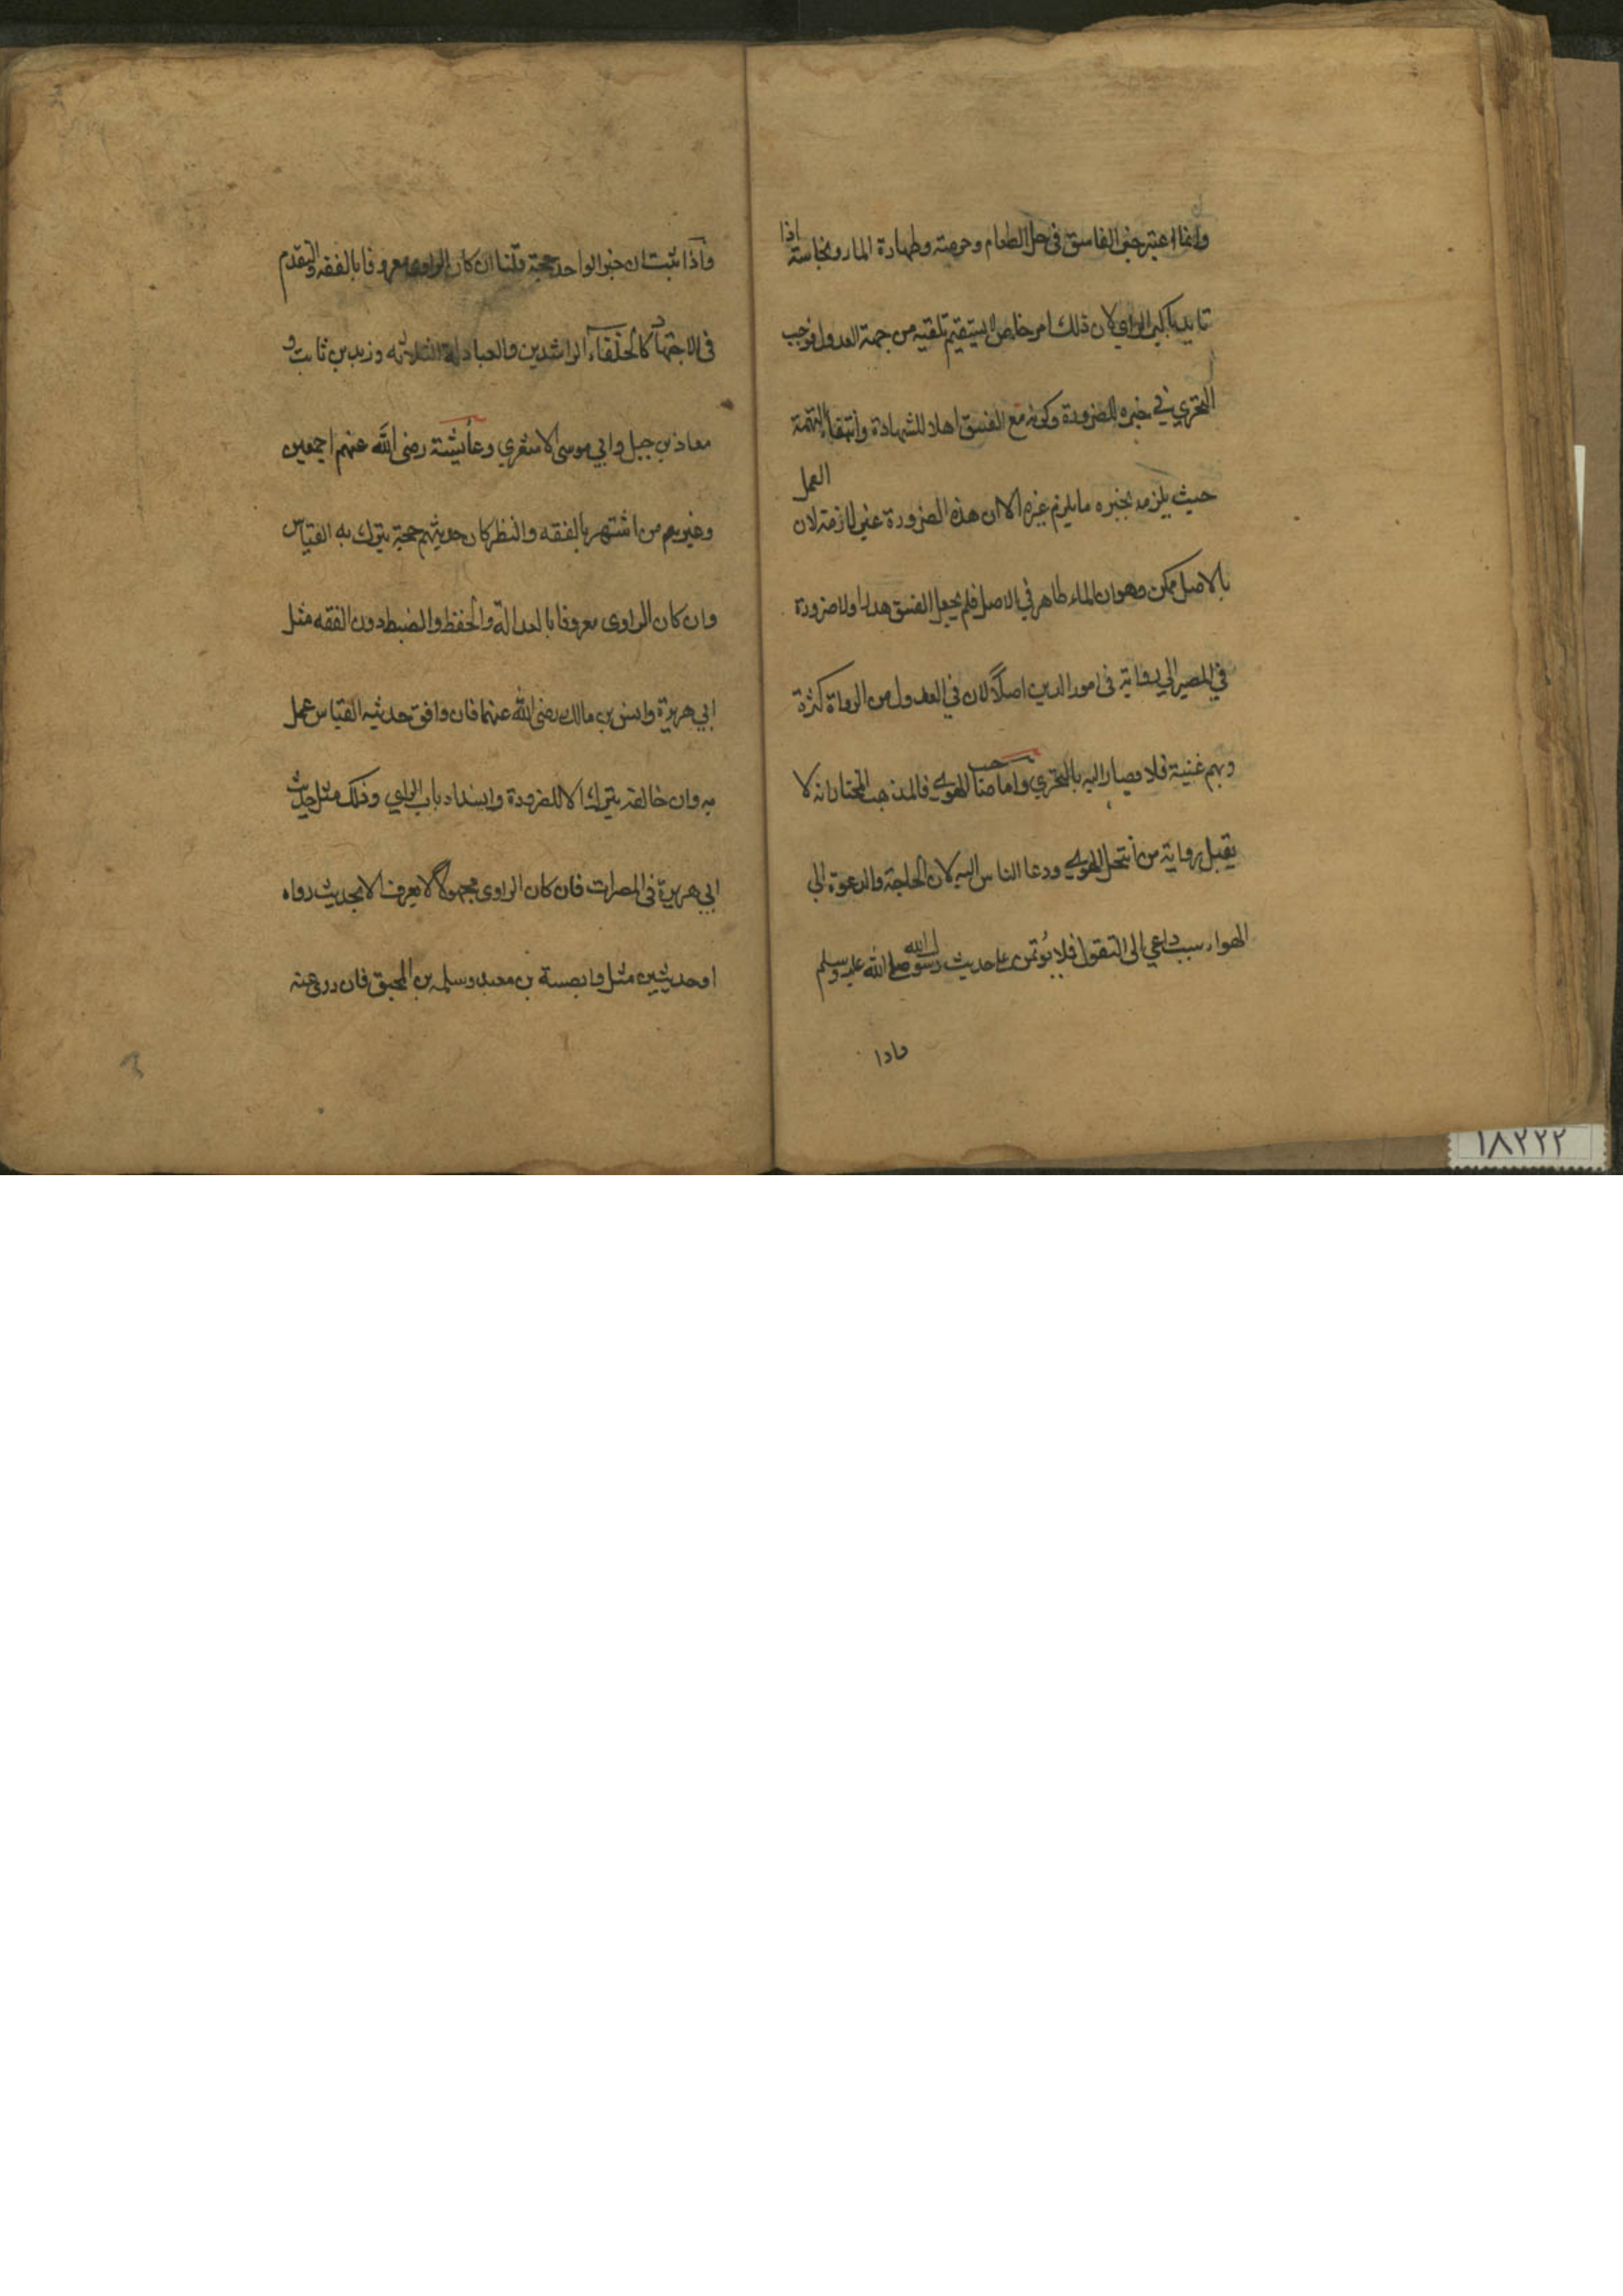 وانما اعتبر خبر الفاسق في حل الطعام وحرمته وطهارة الماء ونجاسته اذا
تايد باكبر الراي لان ذلك امر خاص لا يستقيم تلقيه من جهة العدول فوجب
التحري في خبره للضرورة وكونه مع الفسق اهلا للشهادة وانتفاء التهمة
حيث يلزمه بخبره ما يلزم غيره الا ان هذه الضرورة غير لازمة لان العمل
بالاصل ممكن وهو ان الماء طاهر في الاصل فلم يجعل الفسق هدرا ولا ضرورة
في المصير الي روايته في امور الدين اصلا لان في العدول من الرواة كثرة
وبهم غنية فلا يصار اليه بالتحري واما صاحب الهوي فالمذهب المختار انه لا
يقبل رواية من انتحل الهوي ودعا الناس اليه لان الحاجة والدعوة الي
الهواء سبب داعي الى التقول فلا يؤتمن على حديث رسول الله صلى الله عليه وسلم
واذا
واذا ثبت ان خبر الواحد حجة قلنا ان كان الراوي معروفا بالفقه والتقدم
في الاجتهاد كالخلفاء الراشدين والعبادلة الثلاثه وزيد بن ثابت و
معاذ بن جبل وابي موسى الاشعري وعائشة رضى الله عنهم اجمعين
وغيرهم من اشتهر بالفقه والنظر كان حديثهم حجة يترك به القياس
وان كان الراوى معروفا بالعدالة والحفظ والضبط دون الفقه مثل
ابي هريرة وانس بن مالك رضى الله عنهما فان وافق حديثه القياس عمل
به وان خالفه يترك الا للضرورة وانسداد باب الراي وذلك مثل حديث
ابي هريرة في المصرات فان كان الراوى مجهولا لا يعرف الا بحديث رواه
او حديثين مثل وابصة بن معبد وسلمه بن المحبق فان روى عنه
١٨٢٢٢